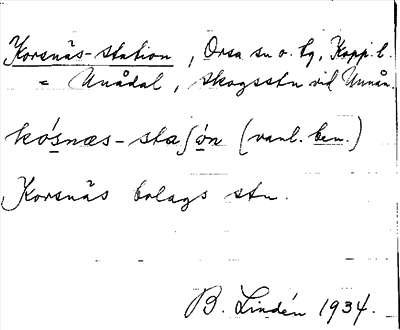 Korsnäs-station, Orsa sn o. tg, Kopp. l.
= Unådal, skogsstn vid Unnån.
kósnæs-staʃón (vanl. ben.)
Korsnäs bolags stn.
B. Lindén 1934.